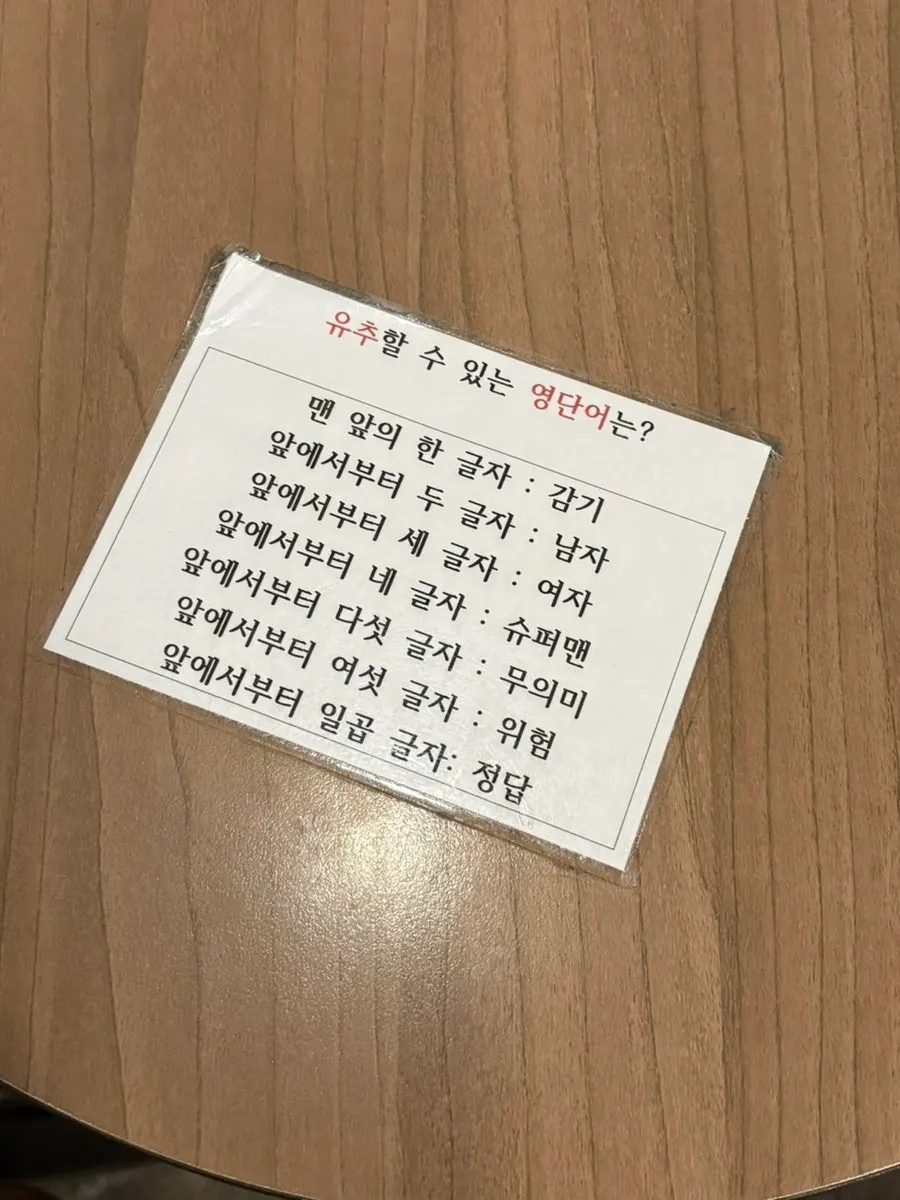 유추할 수 있는 영단어는?
맨 앞의 한 글자 : 감기
앞에서부터 두 글자 : 남자
앞에서부터 세 글자 : 여자
앞에서부터 네 글자 : 슈퍼맨
앞에서부터 다섯 글자 : 무의미
앞에서부터 여섯 글자 : 위험
앞에서부터 일곱 글자: 정답